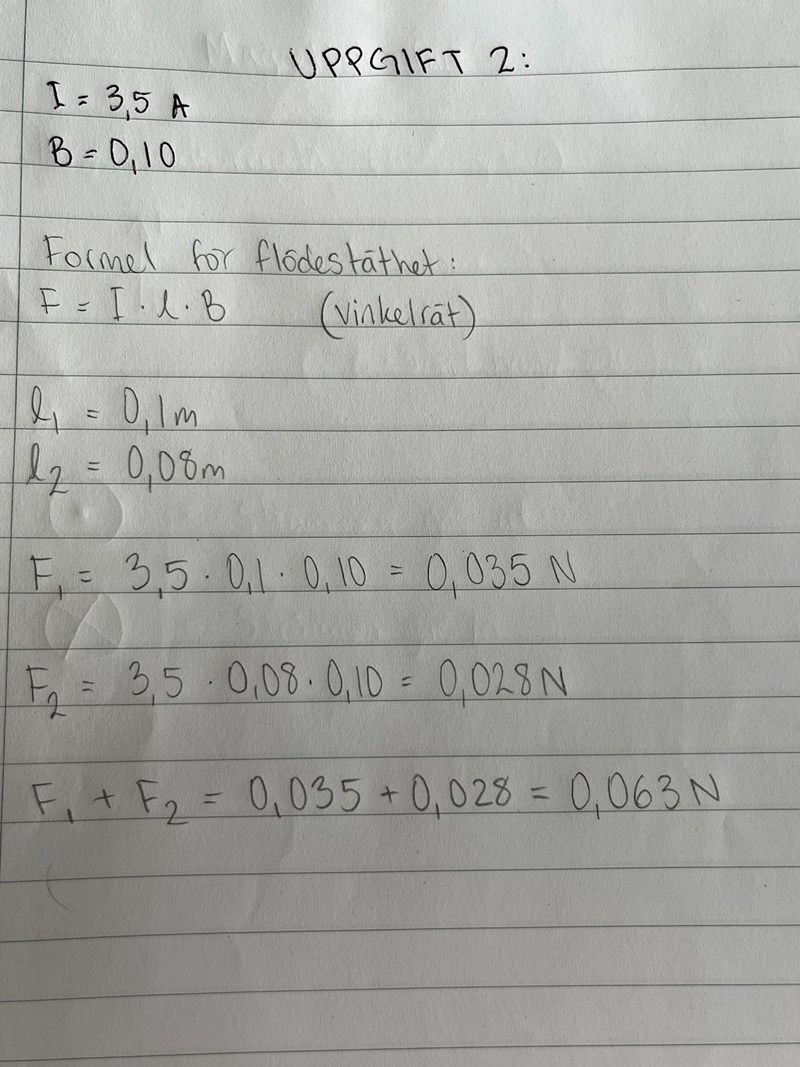 UPPGIFT 2:
I = 3,5 A
B = 0,10
Formel för flödestäthet:
F = I · l · B (vinkelrät)
l₁ = 0,1m
l₂ = 0,08m
F₁ = 3,5 · 0,1 · 0,10 = 0,035 N
F₂ = 3,5 · 0,08 · 0,10 = 0,028 N
F₁ + F₂ = 0,035 + 0,028 = 0,063 N